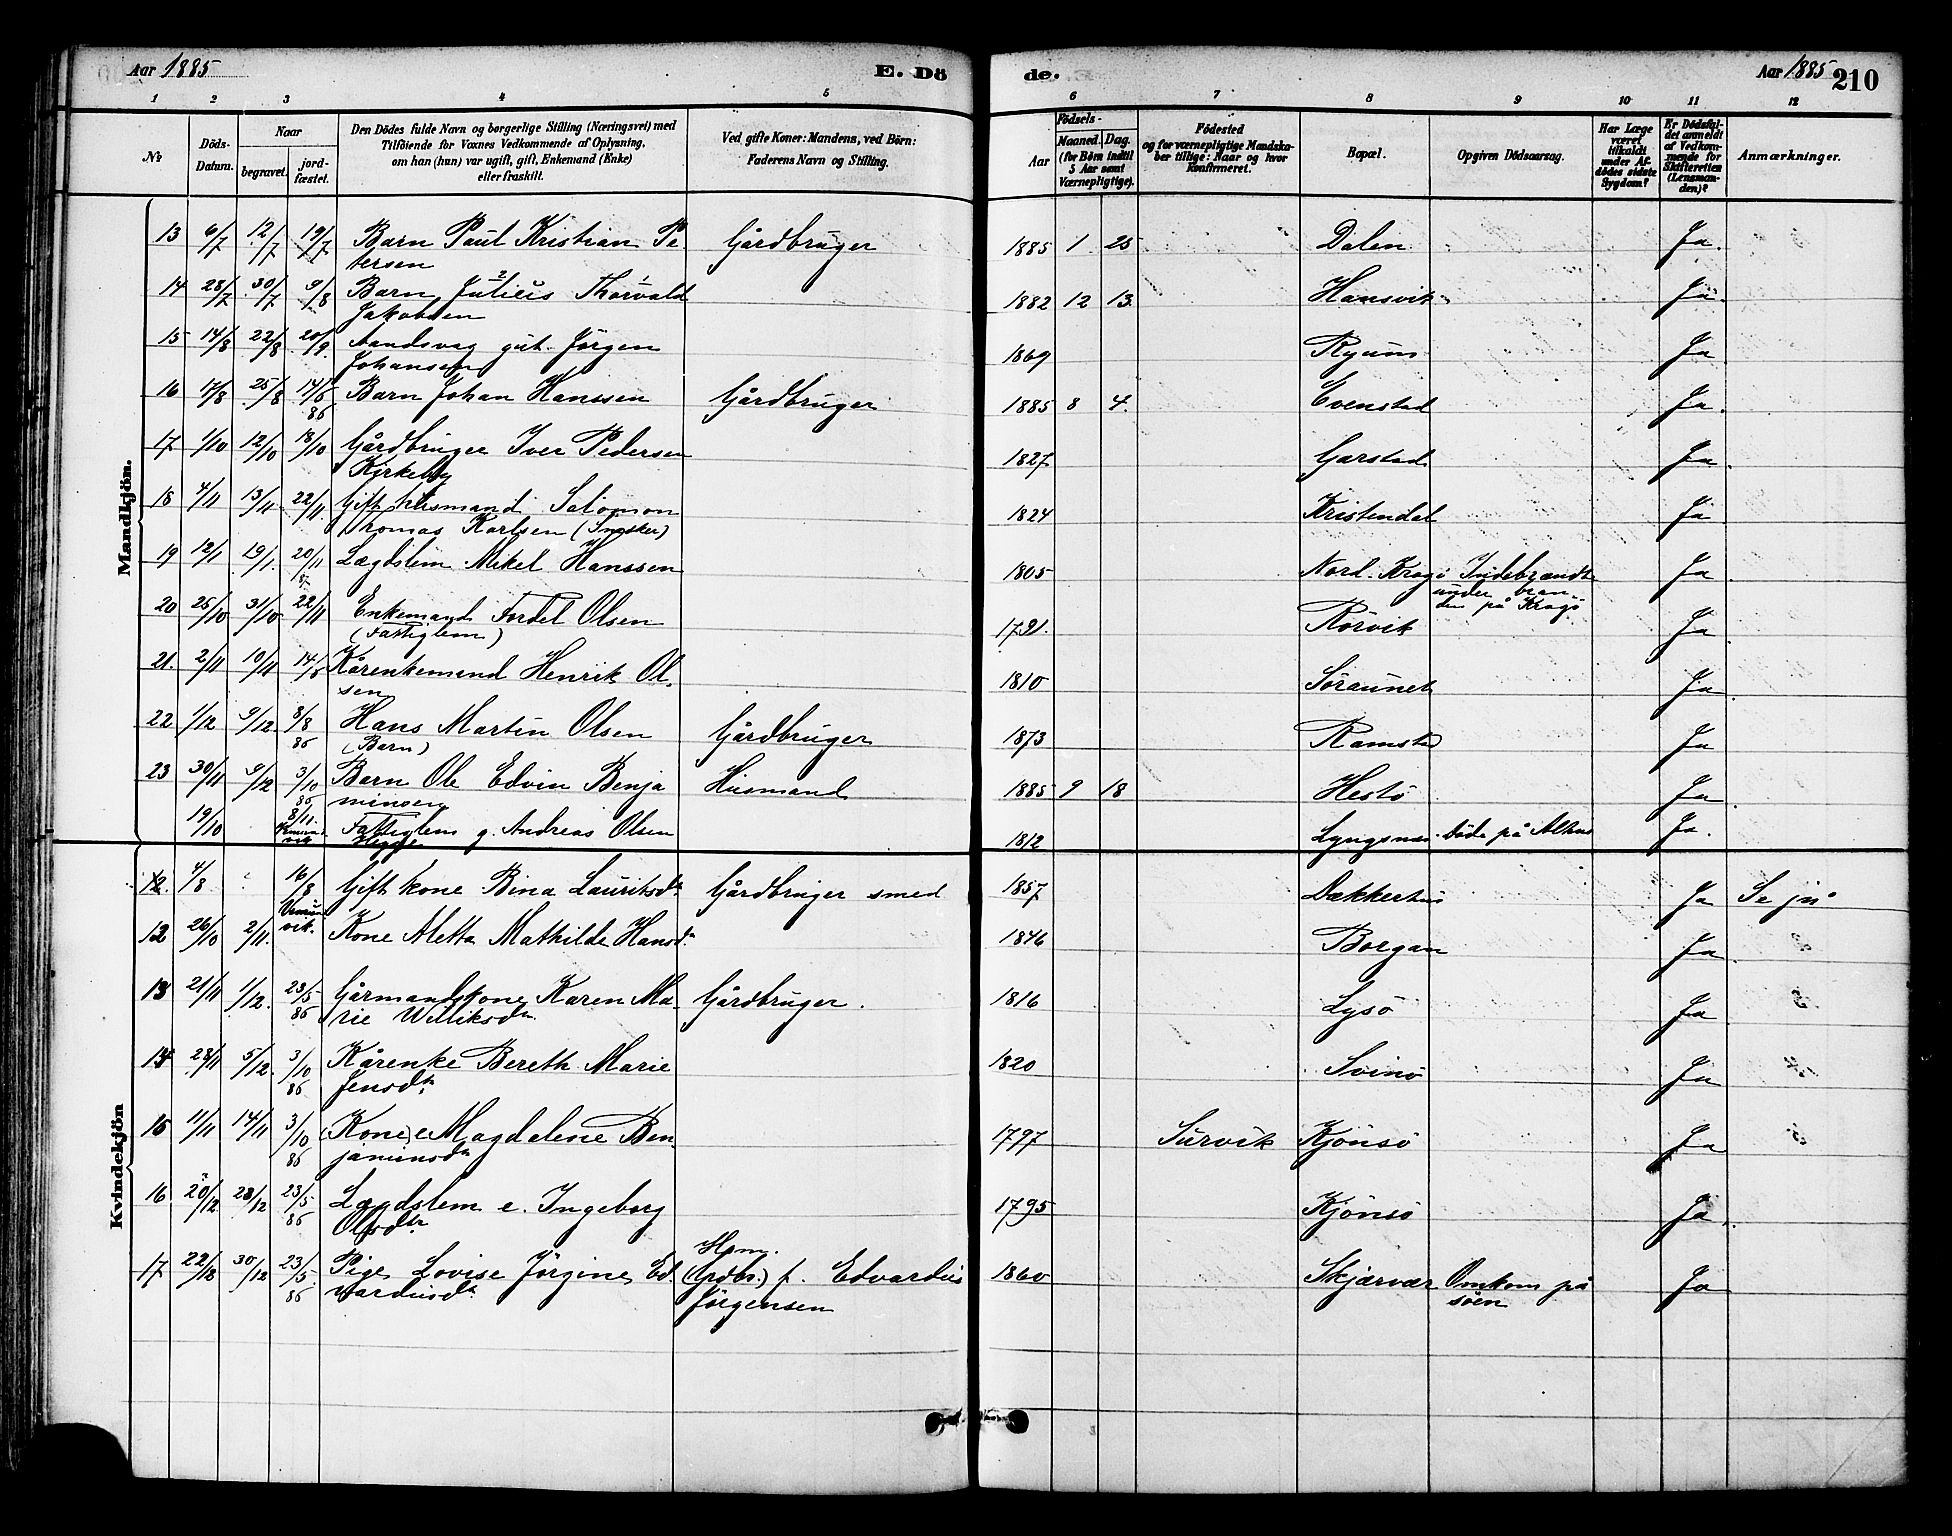 Aar 1885 E. Dö de. Aar 1885 210
1 2 3 4 5 6 7 8 9 10 11 12
No
Döds-Datum.
Naar
begravet.
jord-fæstet.
Den Dödes fulde Navn og borgerlige Stilling (Næringsvei) med
Tilföiende for Voxnes Vedkommende af Oplysning,
om han (hun) var ugift, gift, Enkemand (Enke)
eller fraskilt.
Ved gifte Koner: Mandens, ved Börn:
Faderens Navn og Stilling.
Födsels-
Aar Maaned. Dag.
(for Börn indtil
5 Aar samt
Værnepligtige).
Födested
og for værnepligtige Mandska-
ber tillige: Naar og hvor
Konfirmeret.
Bopæl.
Opgiven Dödsaarsag.
Har Læge
været
tilkaldt
under Af-
dödes sidste
Sygdom?
Er Dödsfal-
det anmeldt
af Vedkom-
mende for
Skifteretten
(Lensman-
den)?
Anmærkninger.
Mandkjön.
13 6/7 12/7 19/7 Barn Paul Kristian Pe Gårdbruger 1885 1 25 Dalen Ja.
tersen
14 28/7 30/7 9/8 Barn Julius Thorvald 1882 12 13. Hansvik Ja.
Jakobsen
15 14/8 22/8 20/9. Aandsvag gut. Jörgen 1869 Ryum Ja
Johansen
16 17/8 25/8 Barn Johan Hanssen Gårdbruger 1885 8 4. Evenstad Ja.
86
17 1/10 12/10 18/10 Gårdbruger Iver Pedersen 1827 Garstad Ja.
Kirkeby
18 4/11 13/11 22/11 Gift husmand Salomon 1824 Kristendal Ja
Tomas Karlsen (Snedker)
19 12/1 19/1. 20/11 Lægdslem Mikel Hanssen 1805 Nord. Kragö Indebrændt Ja
under bran-
den på Kragö
20 25/10 31/10 22/11 Enkemand Fordel Olsen 1791. Rörvik Ja
(Fattiglem)
21. 2/11 10/11 Kårenkemand Henrik Ol- 1810 Söraunet Ja
sen
22 1/12 9/12. 8/8 86 Hans Martin Olsen Gårdbruger 1873 Ramstad Ja
(Barn)
23 30/11 9/12 3/10 86 Barn Ole Edvin Benja Husmand 1885 9 18 Hestö Ja
minsen
19/10 8/11. Fattiglem g. Andreas Olsen 1812 Lyngsnes Döde på Ja.
Kvindekjön
12. 4/8 16/8 Gift kone Bina Lauritsdr. Gårdbruger smed 1857 Dækkerhus Ja
Vemun
vik.
12 26/10 2/11. Kone Metta Mathilde Hansdr. 1846 Borgan Ja
13 21/11 1/12. 23/5 86 Gårmandskone Karen Ma- Gårdbruger. 1816 Lysö Ja
rie Williksdr.
14 28/11 5/12. 3/10 86 Kårenke Bereth Marie 1820 Svinö Ja
Jensdtr.
15 11/11 14/11 3/10 86 (Kone) e Magdelene Ben 1797 Survik Kjönsö Ja
jaminsdr
16 20/12 28/12 23/5 86 Lægdslem e. Ingeborg 1795 Kjönsö Ja
Olsdtr.
17 22/12 30/12 23/5. 86 Pige Lovise Jörgine Ed. Hsm. (Grdbr.) f. Edvardus 1860 Skjærvær Omkom på Ja
vardusdr. Jörgensen söen